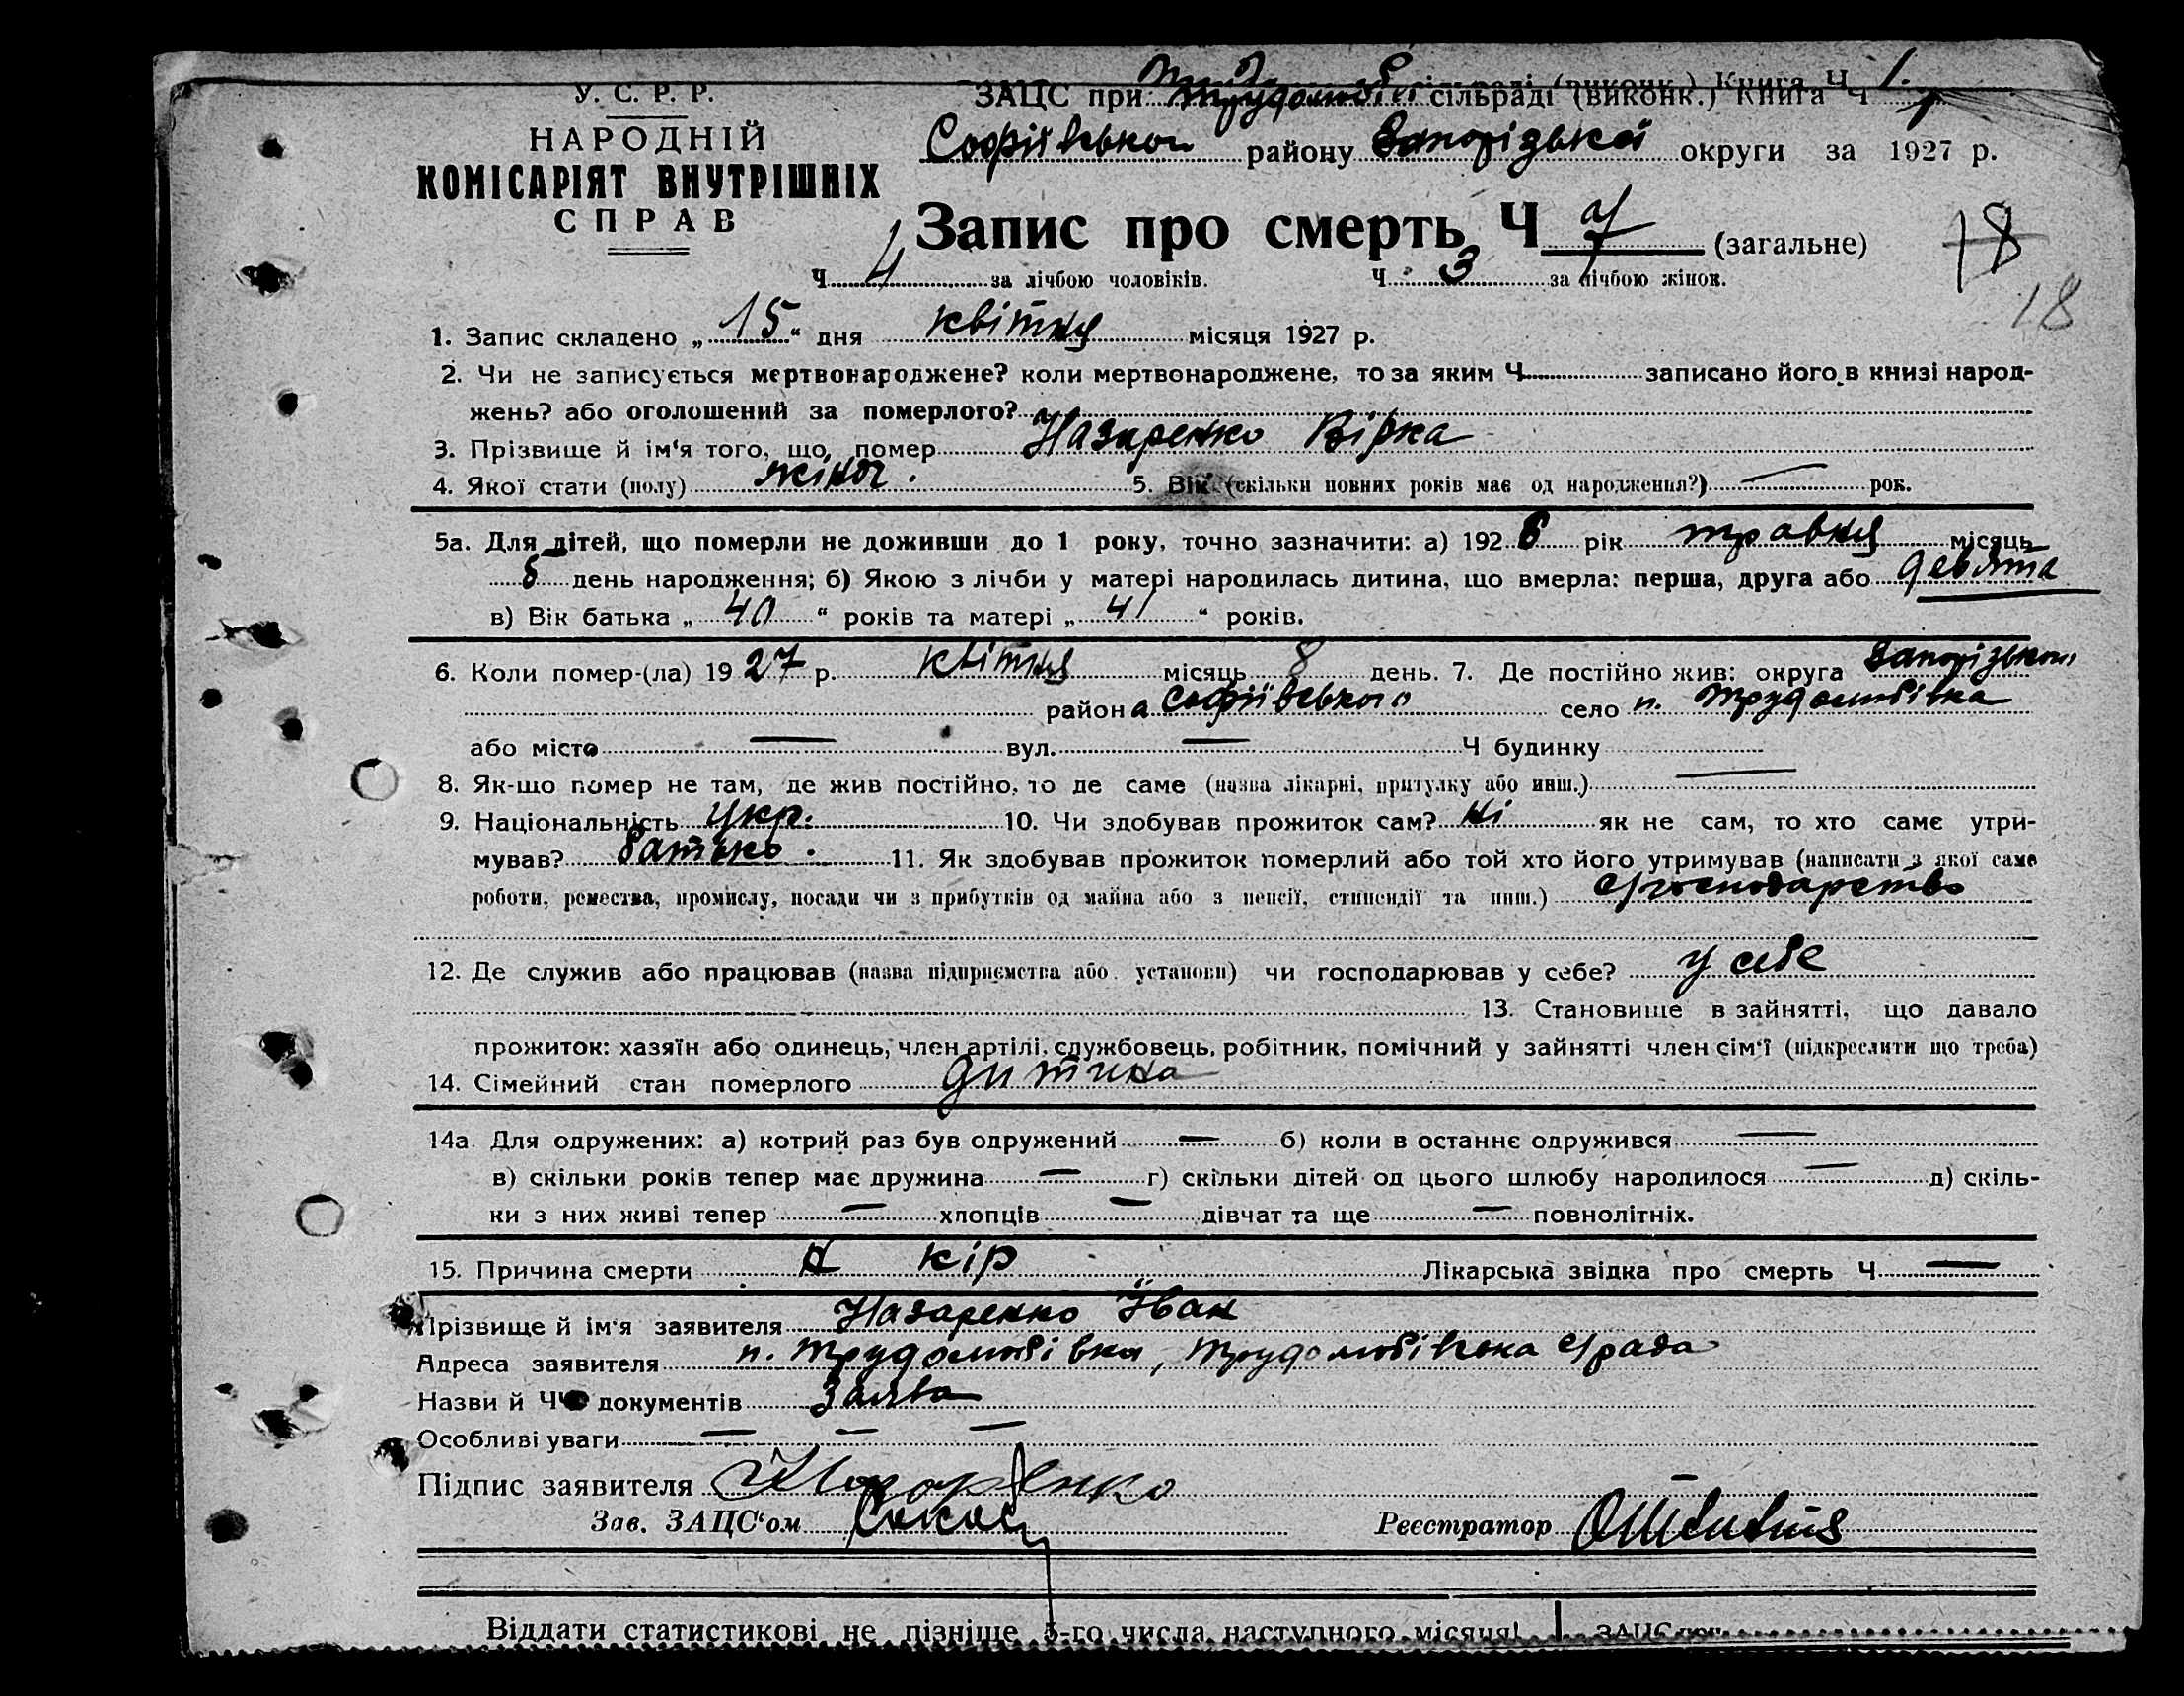 У. С. Р. Р.
НАРОДНІЙ
КОМІСАРІЯТ ВНУТРІШНІХ
СПРАВ
ЗАЦС при сільраді (виконк.) Книга Ч 1
Софіївського району Запорізької округи за 1927 р.
Запис про смерть Ч 7 (загальне)
18
18
Ч 4 за лічбою чоловіків. Ч 3 за лічбою жінок.
1. Запис складено „15“ дня квітня місяця 1927 р.
2. Чи не записується мертвонароджене? коли мертвонароджене, то за яким Ч записано його в книзі народ-
жень? або оголошений за померлого?
3. Прізвище й ім'я того, що помер Назаренко Вірка
4. Якої стати (полу) жіноч. 5. Вік (скільки повних років має од народження?) — рок.
5а. Для дітей, що померли не доживши до 1 року, точно зазначити: а) 1926 рік травня місяць
день народження; б) Якою з лічби у матері народилась дитина, що вмерла: перша, друга або девята
в) Вік батька „40“ років та матері „41“ років.
6. Коли помер-(ла) 1927 р. квітня місяць 8 день. 7. Де постійно жив: округа Запорізької
района Софіївського село п. Трудолюбівка
або місто — вул. — Ч будинку
8. Як-що помер не там, де жив постійно, то де саме (назва лікарні, притулку або инш.) —
9. Національність Укр. 10. Чи здобував прожиток сам? Ні як не сам, то хто саме утри-
мував? батько. 11. Як здобував прожиток померлий або той хто його утримував (написати з якої саме
роботи, ремества, промислу, посади чи з прибутків од майна або з пенсії, стипендії та инш.) с/господарство
12. Де служив або працював (назва підприємства або установи) чи господарював у себе? у себе
13. Становище в зайнятті, що давало
прожиток: хазяїн або одинець, член артілі, службовець, робітник, помічний у зайнятті член сім'ї (підкреслити що треба)
14. Сімейний стан померлого дитина
14а. Для одружених: а) котрий раз був одружений — б) коли в останнє одружився —
в) скільки років тепер має дружина — г) скільки дітей од цього шлюбу народилося — д) скіль-
ки з них живі тепер — хлопців — дівчат та ще — повнолітніх.
15. Причина смерти кір Лікарська звідка про смерть Ч —
Прізвище й ім'я заявителя Назаренко Іван
Адреса заявителя п. Трудолюбівка, Трудолюбівська с/рада
Назви й ЧЧ документів Заява
Особливі уваги — — —
Підпис заявителя Назаренко
Зав. ЗАЦС'ом Реєстратор
Віддати статистикові не пізніше 5-го числа наступного місяця!